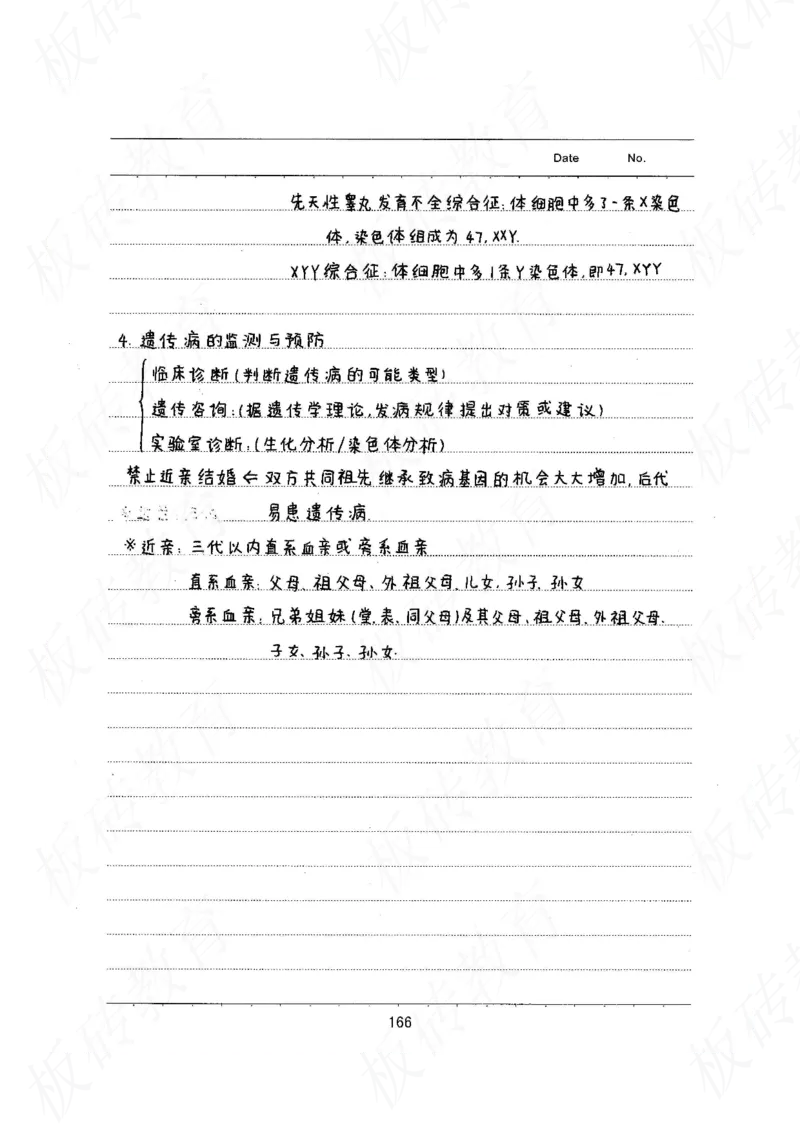 Date No.
先天性睾丸发育不全综合征:体细胞中多了一条X染色
体,染色体组成为 47, XXY.
XYY综合征:体细胞中多1条Y染色体,即47, XYY
4. 遗传病的监测与预防
临床诊断(判断遗传病的可能类型)
遗传咨询:(据遗传学理论,发病规律提出对策或建议)
实验室诊断:(生化分析/染色体分析)
禁止近亲结婚⇐双方共同祖先继承致病基因的机会大大增加,后代
易患遗传病.
※近亲:三代以内直系血亲或旁系血亲
直系血亲:父母、祖父母、外祖父母、儿女、孙子、孙女
旁系血亲:兄弟姐妹(堂、表、同父母)及其父母、祖父母、外祖父母、
子女、孙子、孙女.
166
板砖教育